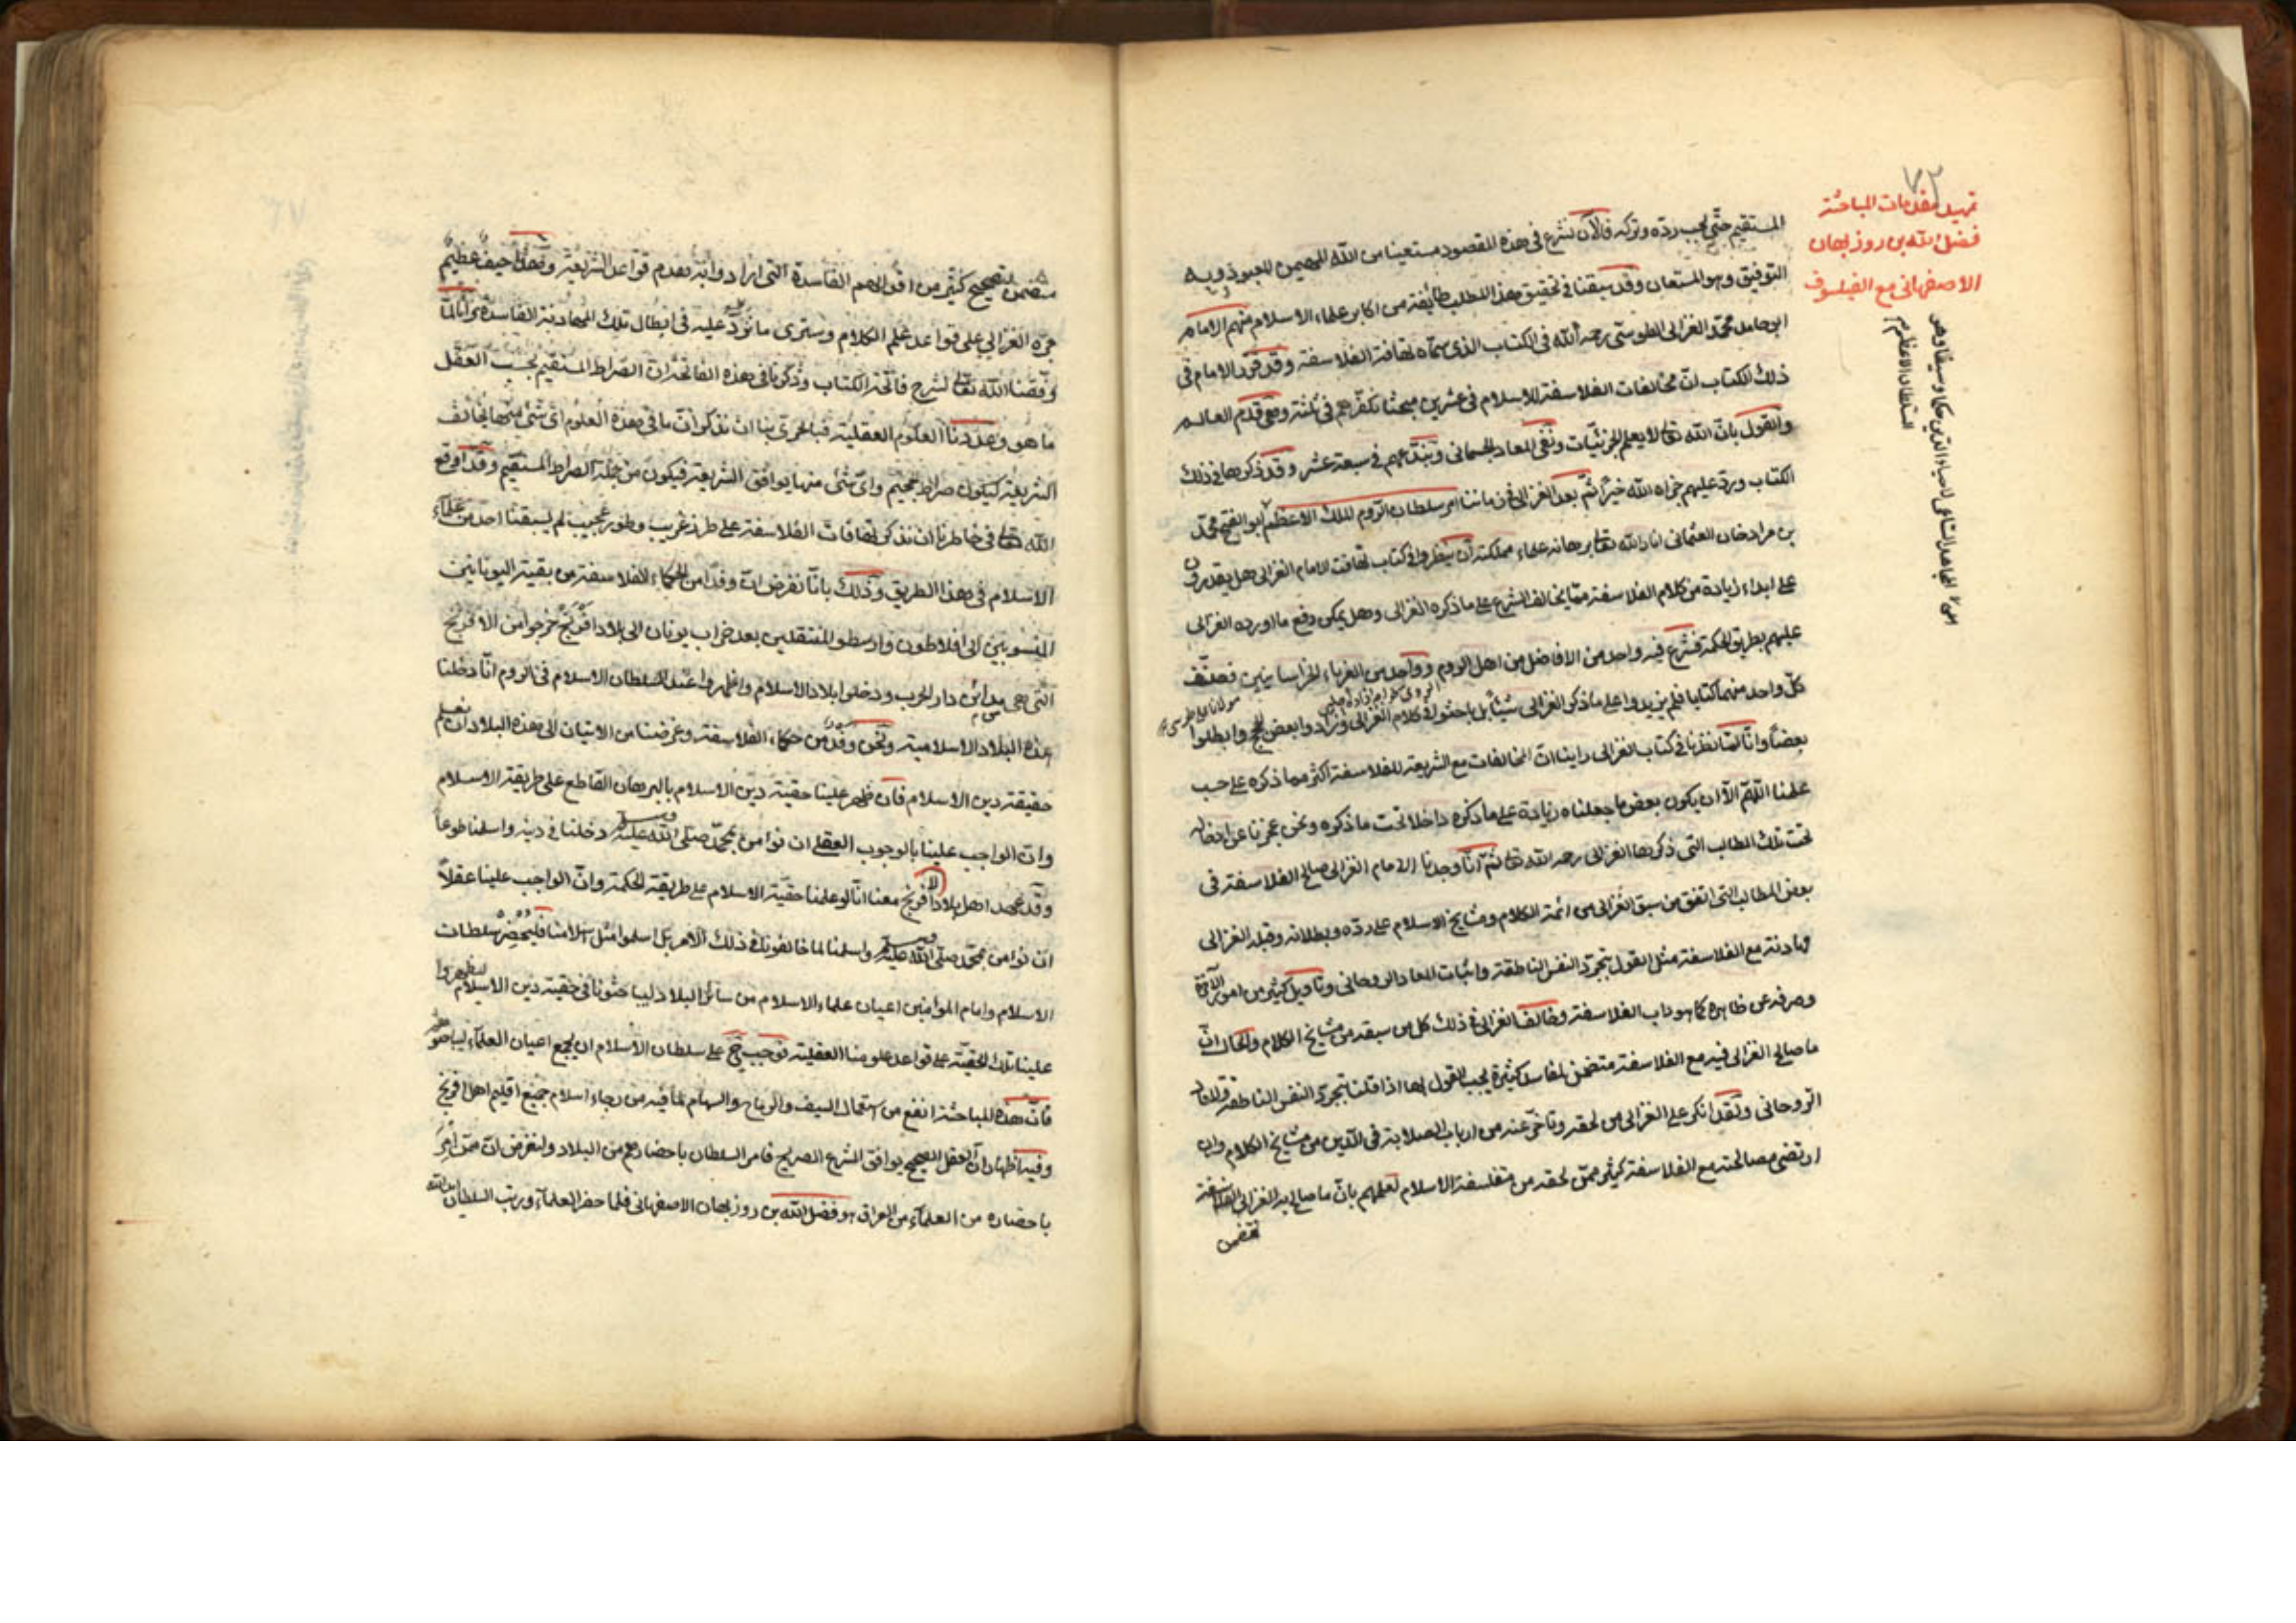 ٧٢
تمهيد مقدمات المباحثة
فضل الله بن روزبهان
الاصفهانى مع الفيلسوف
السلطان الاعظم
المستقيم حتى يجب ردّه وتركه فالآن نشرع فى هذه المقصود مستعينا من الله المهيمن المعبود وبه
التوفيق وهو المستعان وقد سبقنا فى تحقيق هذا المطلب طائفة من اكابر علماء الاسلام منهم الامام
ابو حامد محمّد الغزالى الطوسى رحمه الله فى الكتاب الذى سمّاه تهافة الفلاسفة وقد قرّر الامام فى
ذلك الكتاب انّ مخالفات الفلاسفة للاسلام فى عشرين مبحثا نكفّرهم فى ثلثة وهى قدم العالم
والقول بانّ الله تعالى لا يعلم الجزئيّات ونفى المعاد الجسمانى ونبدّعهم فى سبعة عشر وقد ذكرها فى ذلك
الكتاب وردّ عليهم جزاه الله خيرًا ثمّ بعد الغزالى فى زماننا امر سلطان الروم الملك الاعظم ابو الفتح محمّد
بن مراد خان العثمانى انار الله تعالى برهانه علماء مملكته ان ينظروا فى كتاب تهافت الامام الغزالى هل يقدرون
على ابداء زيادة من كلام الفلاسفة ممّا يخالف الشرع على ما ذكره الغزالى وهل يمكن دفع ما اورده الغزالى
عليهم بطريق الحكمة فشرع فيه واحد من الافاضل من اهل الروم وواحد من الغرباء الخراسانيين فصنّف
كلّ واحد منهما كتابا فلم يزيدوا على ما ذكر الغزالى شيئا بل باحثوا فى كلام الغزالى وزادوا بعض الحجج وابطلوا
بعضًا وانّا لمّا نظرنا فى كتاب الغزالى راينا انّ المخالفات مع الشريعة للفلاسفة اكثر مما ذكره على حسب
علمنا اللّهمّ الّا ان يكون بعض ما جعلناه زيادة على ما ذكره داخلا تحت ما ذكره ونحن عجزنا عن ادخاله
تحت تلك المطالب التى ذكرها الغزالى رحمه الله تعالى ثمّ انّا وجدنا الامام الغزالى صالح الفلاسفة فى
بعض المطالب التى اتفق من سبق الغزالى من ائمة الكلام ومشايخ الاسلام على ردّه وبطلانه وقبله الغزالى
مهادنة مع الفلاسفة مثل القول بتجرّد النفس الناطقة واثبات المعاد الروحانى وتاويل كثير من امور الآخرة
وصرفه عن ظاهره كما هو داب الفلاسفة وخالف الغزالى فى ذلك كل من سبقه من مشايخ الكلام والحال انّ
ما صالح الغزالى فيه مع الفلاسفة متضمّن لمفاسد كثيرة يجب القول بها اذا قلنا بتجرّد النفس الناطقة والمعاد
الروحانى ولقد انكر على الغزالى من لحقه وتاخّر عنه من ارباب الصلابة فى الدّين من مشايخ الكلام وان
ارتضى مصالحته مع الفلاسفة كثير ممّن لحقه من متفلسفة الاسلام لعلمهم بانّ ما صالح به الغزالى الفلاسفة
تتضمن
متضمن لتصحيح كثير من اقوالهم الفاسدة التى ارادوا به هدم قواعد الشريعة وهذا حيف عظيم
جرّه الغزالى على قواعد علم الكلام وسترى ما نورد عليه فى ابطال تلك المهادنة الفاسدة وانّا لمّا
وفّقنا الله تعالى لشرح فاتحة الكتاب وذكرنا فى هذه الفاتحة ان الصّراط المستقيم بحسب العقل
ما هو وعدّدنا العلوم العقلية فبالحرىّ بنا ان نذكر انّ ما فى هذه العلوم اىّ شئ منها يخالف
الشريعة ليكون صراط الجحيم واىّ شئ منها يوافق الشريعة فيكون من جملة الصراط المستقيم وقد اوقع
الله تعالى فى خاطرنا ان نذكر تهافات الفلاسفة على طرز غريب وطور عجيب لم يسبقنا احد من علماء
الاسلام فى هذا الطريق وذلك بانّا نفرض انّ وفدا من الحكماء الفلاسفة من بقية اليونانيين
المنسوبين الى افلاطون وارسطو المنتقلين بعد خراب يونان الى بلاد افرنج خرجوا من الافرنج
التى هى مدائن دار الحرب ودخلوا بلاد الاسلام واظهروا عند السلطان الاسلام فى الروم انّا دخلنا
هذه البلاد الاسلامية ونحن وفد من حكماء الفلاسفة وغرضنا من الاتيان الى هذه البلاد ان نعلم
حقيقة دين الاسلام فان ظهر علينا حقية دين الاسلام بالبرهان القاطع على طريقة الاسلام
وانّ الواجب علينا بالوجوب العقلى ان نؤمن بمحمّد صلى الله عليه وسلم دخلنا فى دينه واسلمنا طوعا
وقد عهد اهل بلاد الافرنج معنا انّا لو علمنا حقية الاسلام على طريقة الحكمة وانّ الواجب علينا عقلاً
ان نؤمن بمحمّد صلى الله عليه وسلم واسلمنا لما خالفونا فى ذلك الامر بل اسلموا مثل اسلامنا فليحضر سلطان
الاسلام وامام المؤمنين اعيان علماء الاسلام من سائر البلاد ليباحثونا فى حقية دين الاسلام ليظهروا
علينا تلك الحقيّة على قواعد علومنا العقلية فوجب ح على سلطان الاسلام ان يجمع اعيان العلماء ليباحثوهم
فانّ هذه المباحثة انفع من استعمال السيف والرماح والسهام لما فيه من رجاء اسلام جميع اقليم اهل افرنج
وفيه اظهار ان العقل الصحيح يوافق الشرع الصريح فامر السلطان باحضارهم من البلاد ولنفرض انّ ممّن امر
باحضاره من العلماء من العراق هو فضل الله بن روزبهان الاصفهانى فلما حضر العلماء ورتب السلطان